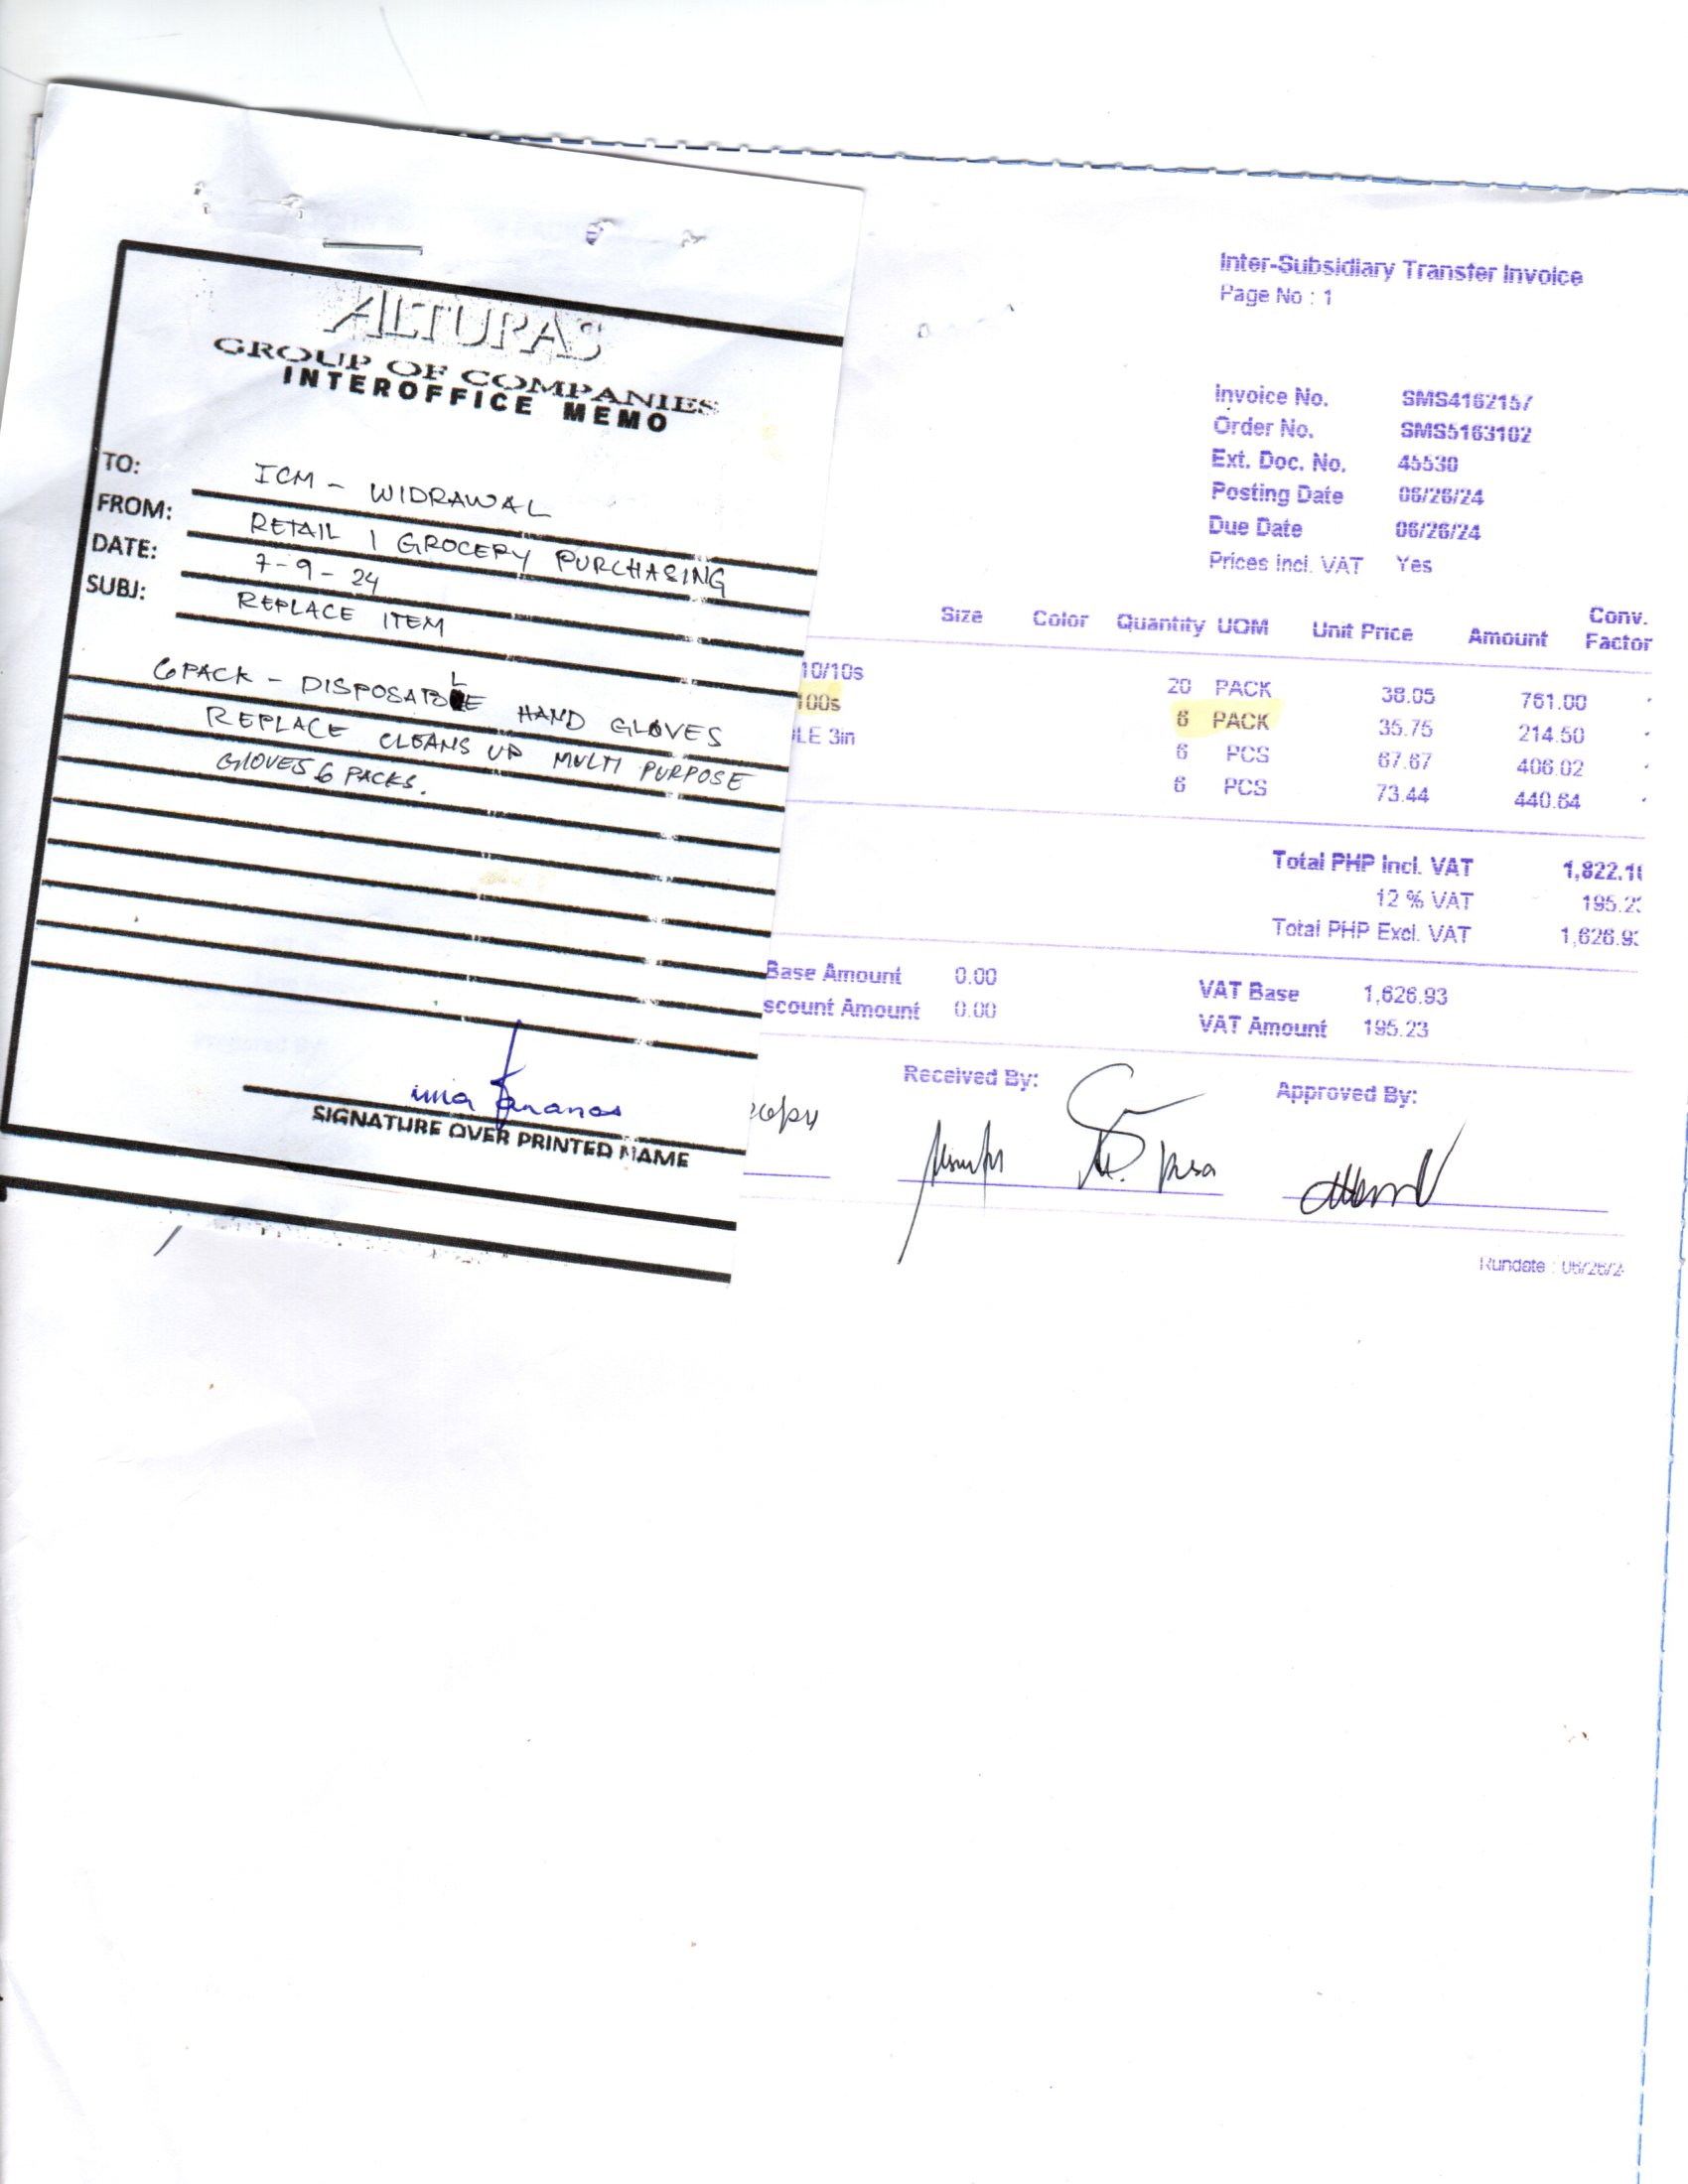 ALTURAS
GROUP OF COMPANIES
INTEROFFICE MEMO
TO: ICM - WIDRAWAL
FROM: RETAIL 1 GROCERY PURCHASING
DATE: 7-9-24
SUBJ: REPLACE ITEM
6 PACK - DISPOSABLE HAND GLOVES
REPLACE CLEANS UP MULTI PURPOSE
GLOVES 6 PACKS.
SIGNATURE OVER PRINTED NAME
Inter-Subsidiary Transfer Invoice
Page No : 1
Invoice No. SMS4162157
Order No. SMS5163102
Ext. Doc. No. 45530
Posting Date 06/26/24
Due Date 06/26/24
Prices incl. VAT Yes
Size Color Quantity UOM Unit Price Amount Conv. Factor
10/10s 20 PACK 38.05 761.00
100s 6 PACK 35.75 214.50
LE 3in 6 PCS 67.67 406.02
6 PCS 73.44 440.64
Total PHP Incl. VAT 1,822.1
12 % VAT 195.2
Total PHP Excl. VAT 1,626.9
Base Amount 0.00 VAT Base 1,626.93
scount Amount 0.00 VAT Amount 195.23
Received By: Approved By:
Rundate : 06/26/2